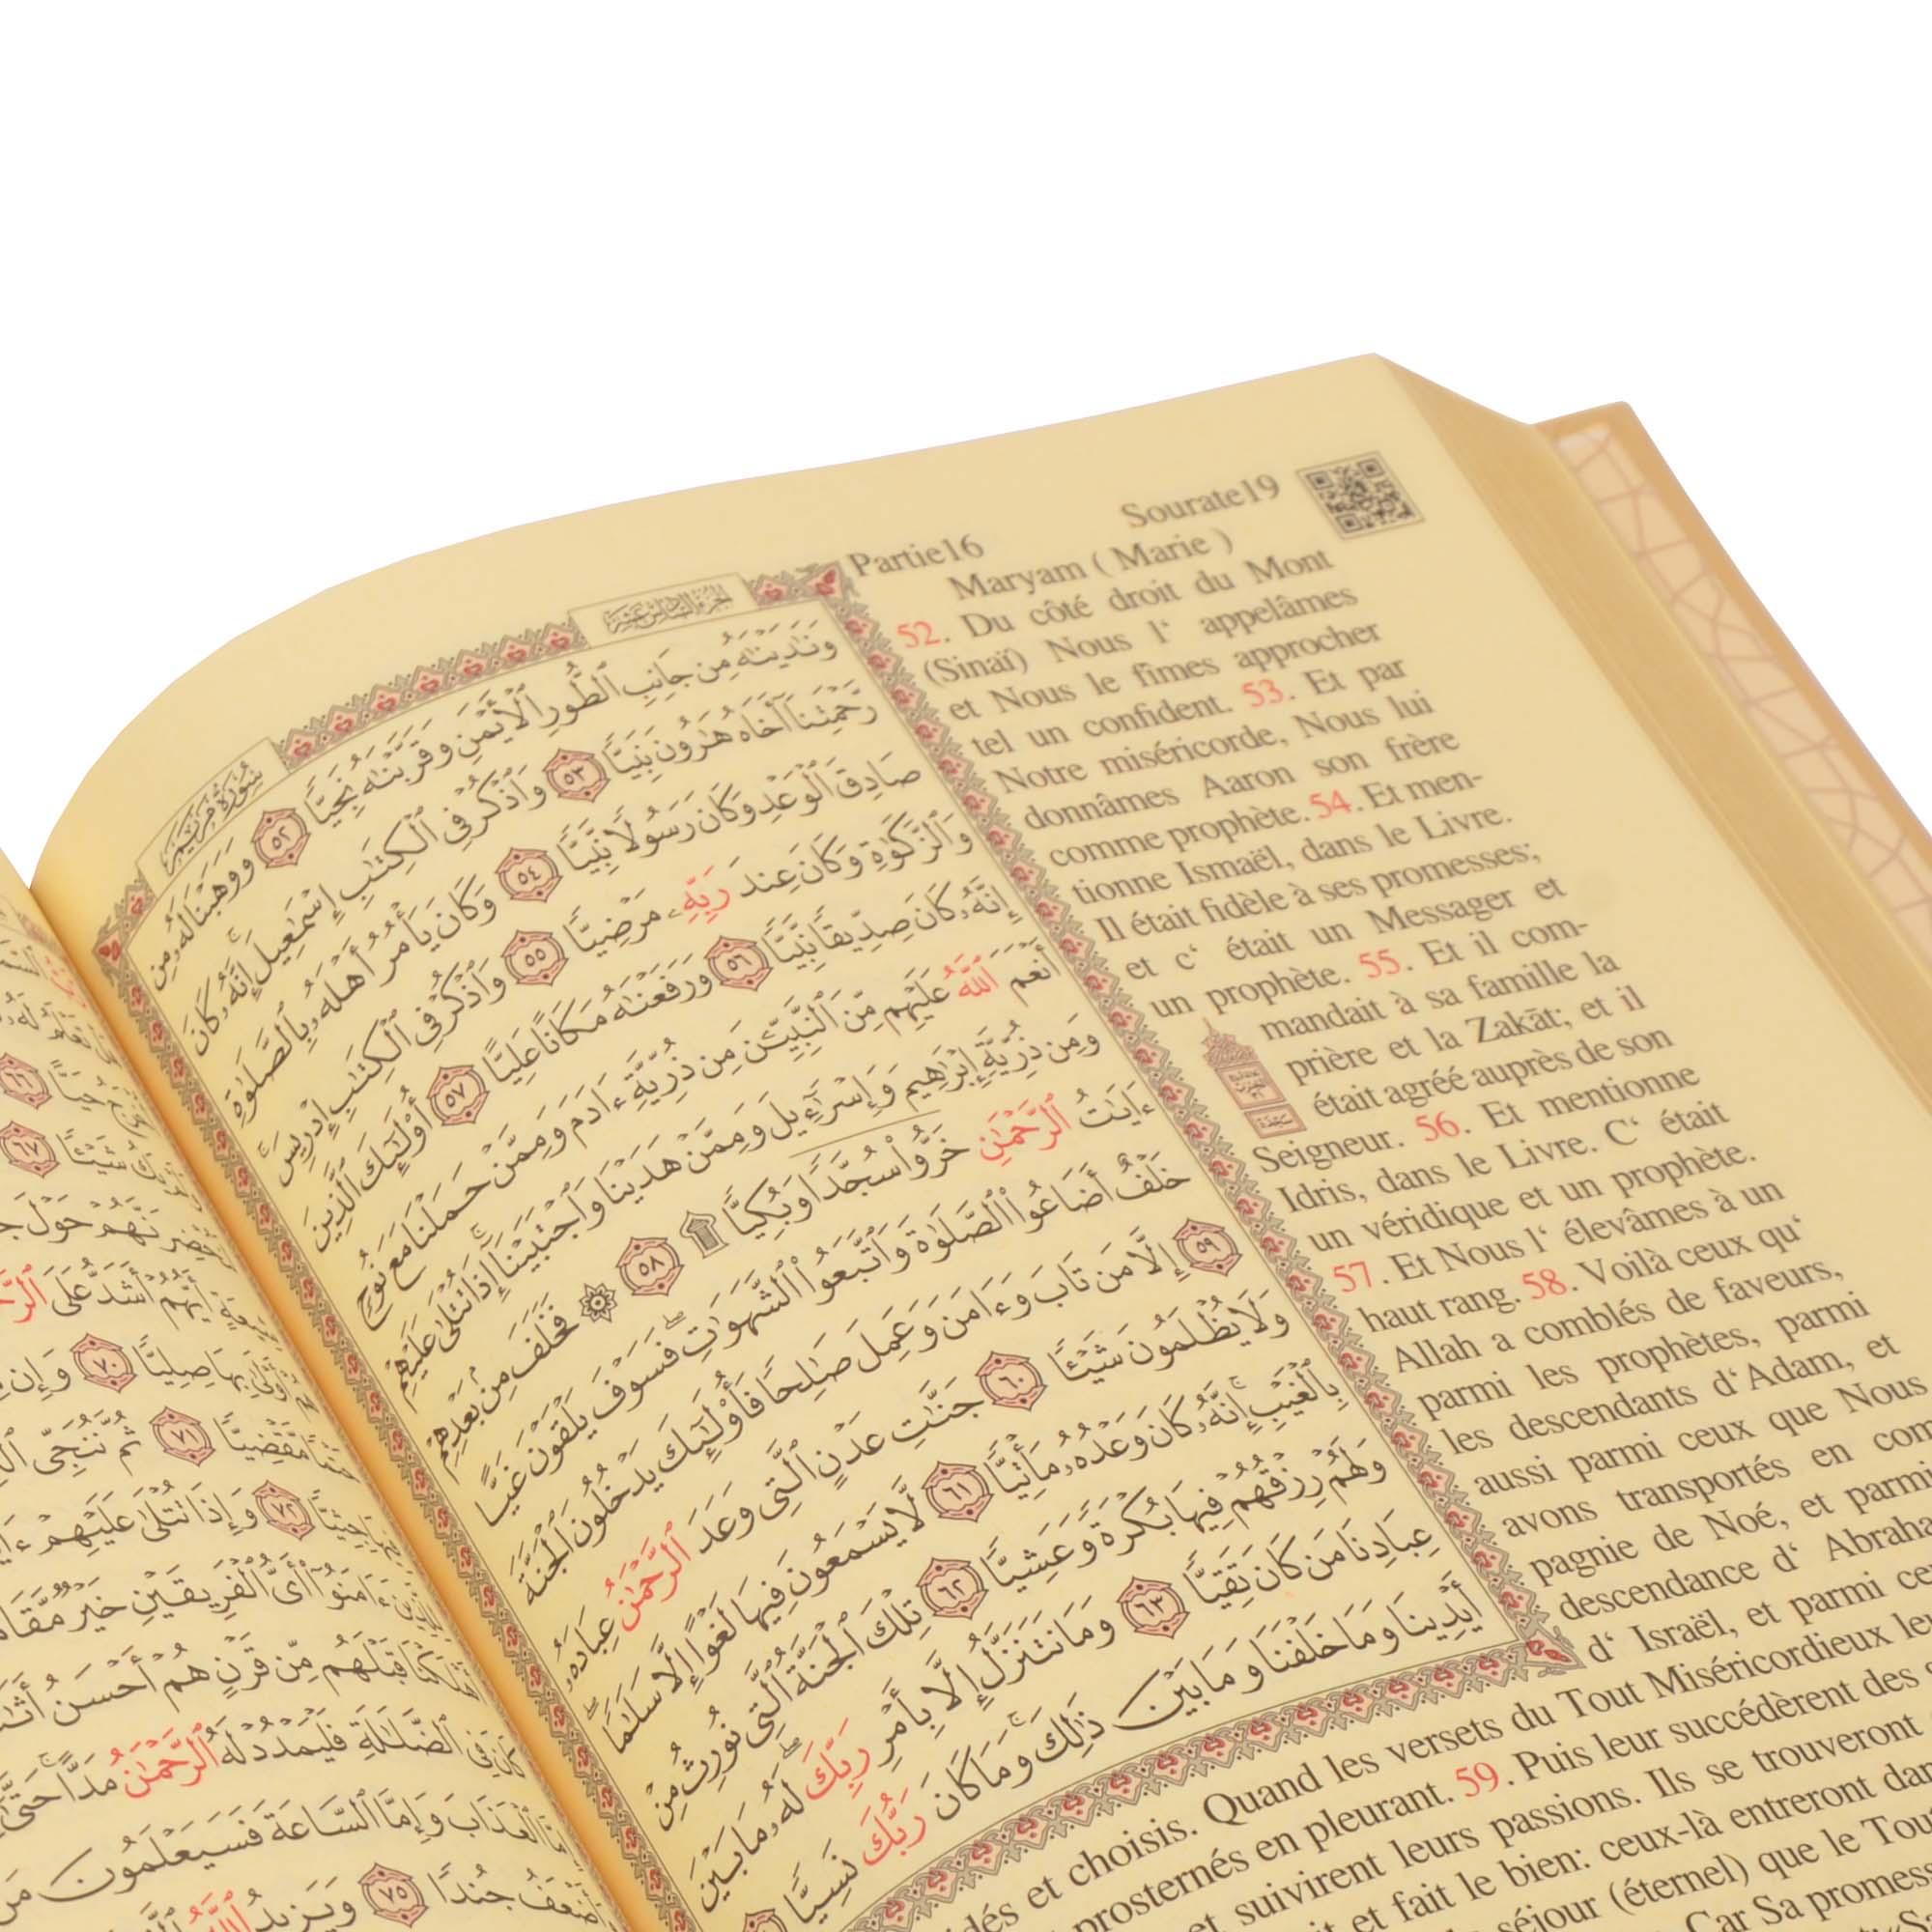 Partie16 Sourate19
Maryam ( Marie )
52. Du côté droit du Mont
(Sinaï) Nous l‘ appelâmes
et Nous le fîmes approcher
tel un confident. 53. Et par
Notre miséricorde, Nous lui
donnâmes Aaron son frère
comme prophète. 54. Et men-
tionne Ismaël, dans le Livre.
Il était fidèle à ses promesses;
et c‘ était un Messager et
un prophète. 55. Et il com-
mandait à sa famille la
prière et la Zakāt; et il
était agréé auprès de son
Seigneur. 56. Et mentionne
Idris, dans le Livre. C‘ était
un véridique et un prophète.
57. Et Nous l‘ élevâmes à un
haut rang. 58. Voilà ceux qu‘
Allah a comblés de faveurs,
parmi les prophètes, parmi
les descendants d‘Adam, et
aussi parmi ceux que Nous
avons transportés en com
pagnie de Noé, et parmi
descendance d‘ Abraha
d‘ Israël, et parmi ce
et choisis. Quand les versets du Tout Miséricordieux
prosternés en pleurant. 59. Puis leur succédèrent des
et suivirent leurs passions. Ils se trouveront
et fait le bien: ceux-là entreront
séjour (éternel) que le
Car Sa
الجزء السادس عشر
سورة مريم
وَنَٰدَيْنَٰهُ مِن جَانِبِ ٱلطُّورِ ٱلْأَيْمَنِ وَقَرَّبْنَٰهُ نَجِيًّا ٥٢ وَوَهَبْنَا لَهُۥ مِن
رَّحْمَتِنَآ أَخَاهُ هَٰرُونَ نَبِيًّا ٥٣ وَٱذْكُرْ فِى ٱلْكِتَٰبِ إِسْمَٰعِيلَ ۚ إِنَّهُۥ كَانَ
صَادِقَ ٱلْوَعْدِ وَكَانَ رَسُولًا نَّبِيًّا ٥٤ وَكَانَ يَأْمُرُ أَهْلَهُۥ بِٱلصَّلَوٰةِ
وَٱلزَّكَوٰةِ وَكَانَ عِندَ رَبِّهِۦ مَرْضِيًّا ٥٥ وَٱذْكُرْ فِى ٱلْكِتَٰبِ إِدْرِيسَ ۚ
إِنَّهُۥ كَانَ صِدِّيقًا نَّبِيًّا ٥٦ وَرَفَعْنَٰهُ مَكَانًا عَلِيًّا ٥٧ أُو۟لَٰٓئِكَ ٱلَّذِينَ
أَنْعَمَ ٱللَّهُ عَلَيْهِم مِّنَ ٱلنَّبِيِّـۧنَ مِن ذُرِّيَّةِ ءَادَمَ وَمِمَّنْ حَمَلْنَا مَعَ نُوحٍ
وَمِن ذُرِّيَّةِ إِبْرَٰهِيمَ وَإِسْرَٰٓءِيلَ وَمِمَّنْ هَدَيْنَا وَٱجْتَبَيْنَآ ۚ إِذَا تُتْلَىٰ عَلَيْهِمْ
ءَايَٰتُ ٱلرَّحْمَٰنِ خَرُّوا۟ سُجَّدًا وَبُكِيًّا ۩ ٥٨ ۞ فَخَلَفَ مِنۢ بَعْدِهِمْ
خَلْفٌ أَضَاعُوا۟ ٱلصَّلَوٰةَ وَٱتَّبَعُوا۟ ٱلشَّهَوَٰتِ ۖ فَسَوْفَ يَلْقَوْنَ غَيًّا
٥٩ إِلَّا مَن تَابَ وَءَامَنَ وَعَمِلَ صَٰلِحًا فَأُو۟لَٰٓئِكَ يَدْخُلُونَ ٱلْجَنَّةَ
وَلَا يُظْلَمُونَ شَيْـًٔا ٦٠ جَنَّٰتِ عَدْنٍ ٱلَّتِى وَعَدَ ٱلرَّحْمَٰنُ عِبَادَهُۥ
بِٱلْغَيْبِ ۚ إِنَّهُۥ كَانَ وَعْدُهُۥ مَأْتِيًّا ٦١ لَّا يَسْمَعُونَ فِيهَا لَغْوًا إِلَّا سَلَٰمًا ۖ
وَلَهُمْ رِزْقُهُمْ فِيهَا بُكْرَةً وَعَشِيًّا ٦٢ تِلْكَ ٱلْجَنَّةُ ٱلَّتِى نُورِثُ مِنْ
عِبَادِنَا مَن كَانَ تَقِيًّا ٦٣ وَمَا نَتَنَزَّلُ إِلَّا بِأَمْرِ رَبِّكَ ۖ لَهُۥ مَا بَيْنَ
أَيْدِينَا وَمَا خَلْفَنَا وَمَا بَيْنَ ذَٰلِكَ ۚ وَمَا كَانَ رَبُّكَ نَسِيًّا
٦٦
شَيْـًٔا ٦٧
حَوْلَ
أَيُّهُمْ أَشَدُّ عَلَى
أَوْلَىٰ بِهَا صِلِيًّا ٧٠ وَإِن
حَتْمًا مَّقْضِيًّا ٧١ ثُمَّ نُنَجِّى
جِثِيًّا ٧٢ وَإِذَا تُتْلَىٰ عَلَيْهِمْ
ءَامَنُوٓا۟ أَىُّ ٱلْفَرِيقَيْنِ خَيْرٌ
قَبْلَهُم مِّن قَرْنٍ هُمْ أَحْسَنُ
كَانَ فِى ٱلضَّلَٰلَةِ فَلْيَمْدُدْ لَهُ ٱلرَّحْمَٰنُ مَدًّا ۚ
ٱلْعَذَابَ وَإِمَّا ٱلسَّاعَةَ فَسَيَعْلَمُونَ
جُندًا ٧٥ وَيَزِيدُ ٱللَّهُ